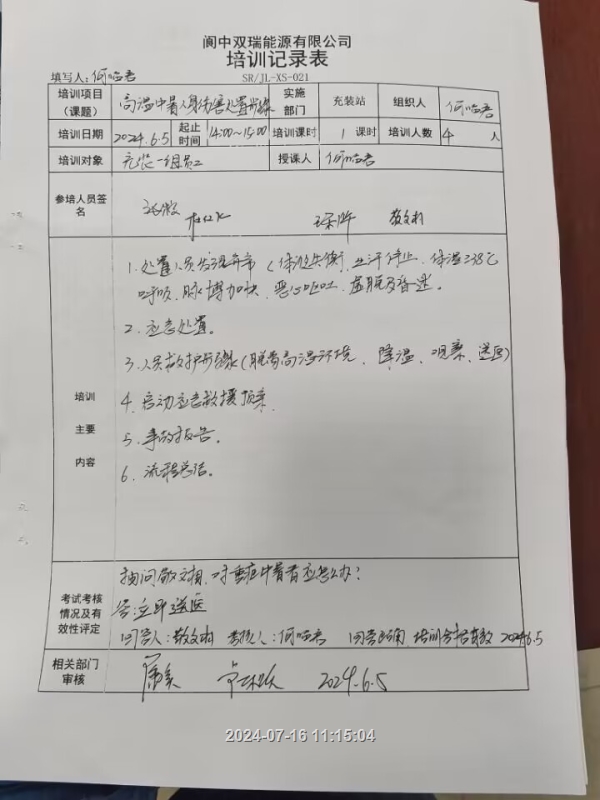 阆中双瑞能源有限公司
培训记录表
填写人：何 SR/JL-XS-021
培训项目（课题） 高温中暑人身伤害处置步骤 实施部门 充装站 组织人 何
培训日期 2024.6.5 起止时间 14:00~15:00 培训课时 1 课时 培训人数 4 人
培训对象 充装一组员工 授课人 何
参培人员签名 敬文相
培训主要内容
1.处置人员发现异常（体液失衡、出汗停止、体温≥38℃
呼吸、脉搏加快、恶心呕吐、虚脱及昏迷。
2.应急处置。
3.人员救护步骤（脱离高温环境、降温、观察、送医）
4.启动应急救援预案
5.事故报告。
6.流程总结。
考试考核情况及有效性评定
抽问敬文相，对重症中暑者应怎么办？
答：立即送医
回答人：敬文相 考核人：何 回答正确，培训合格有效 2024.6.5
相关部门审核 2024.6.5
2024-07-16 11:15:04